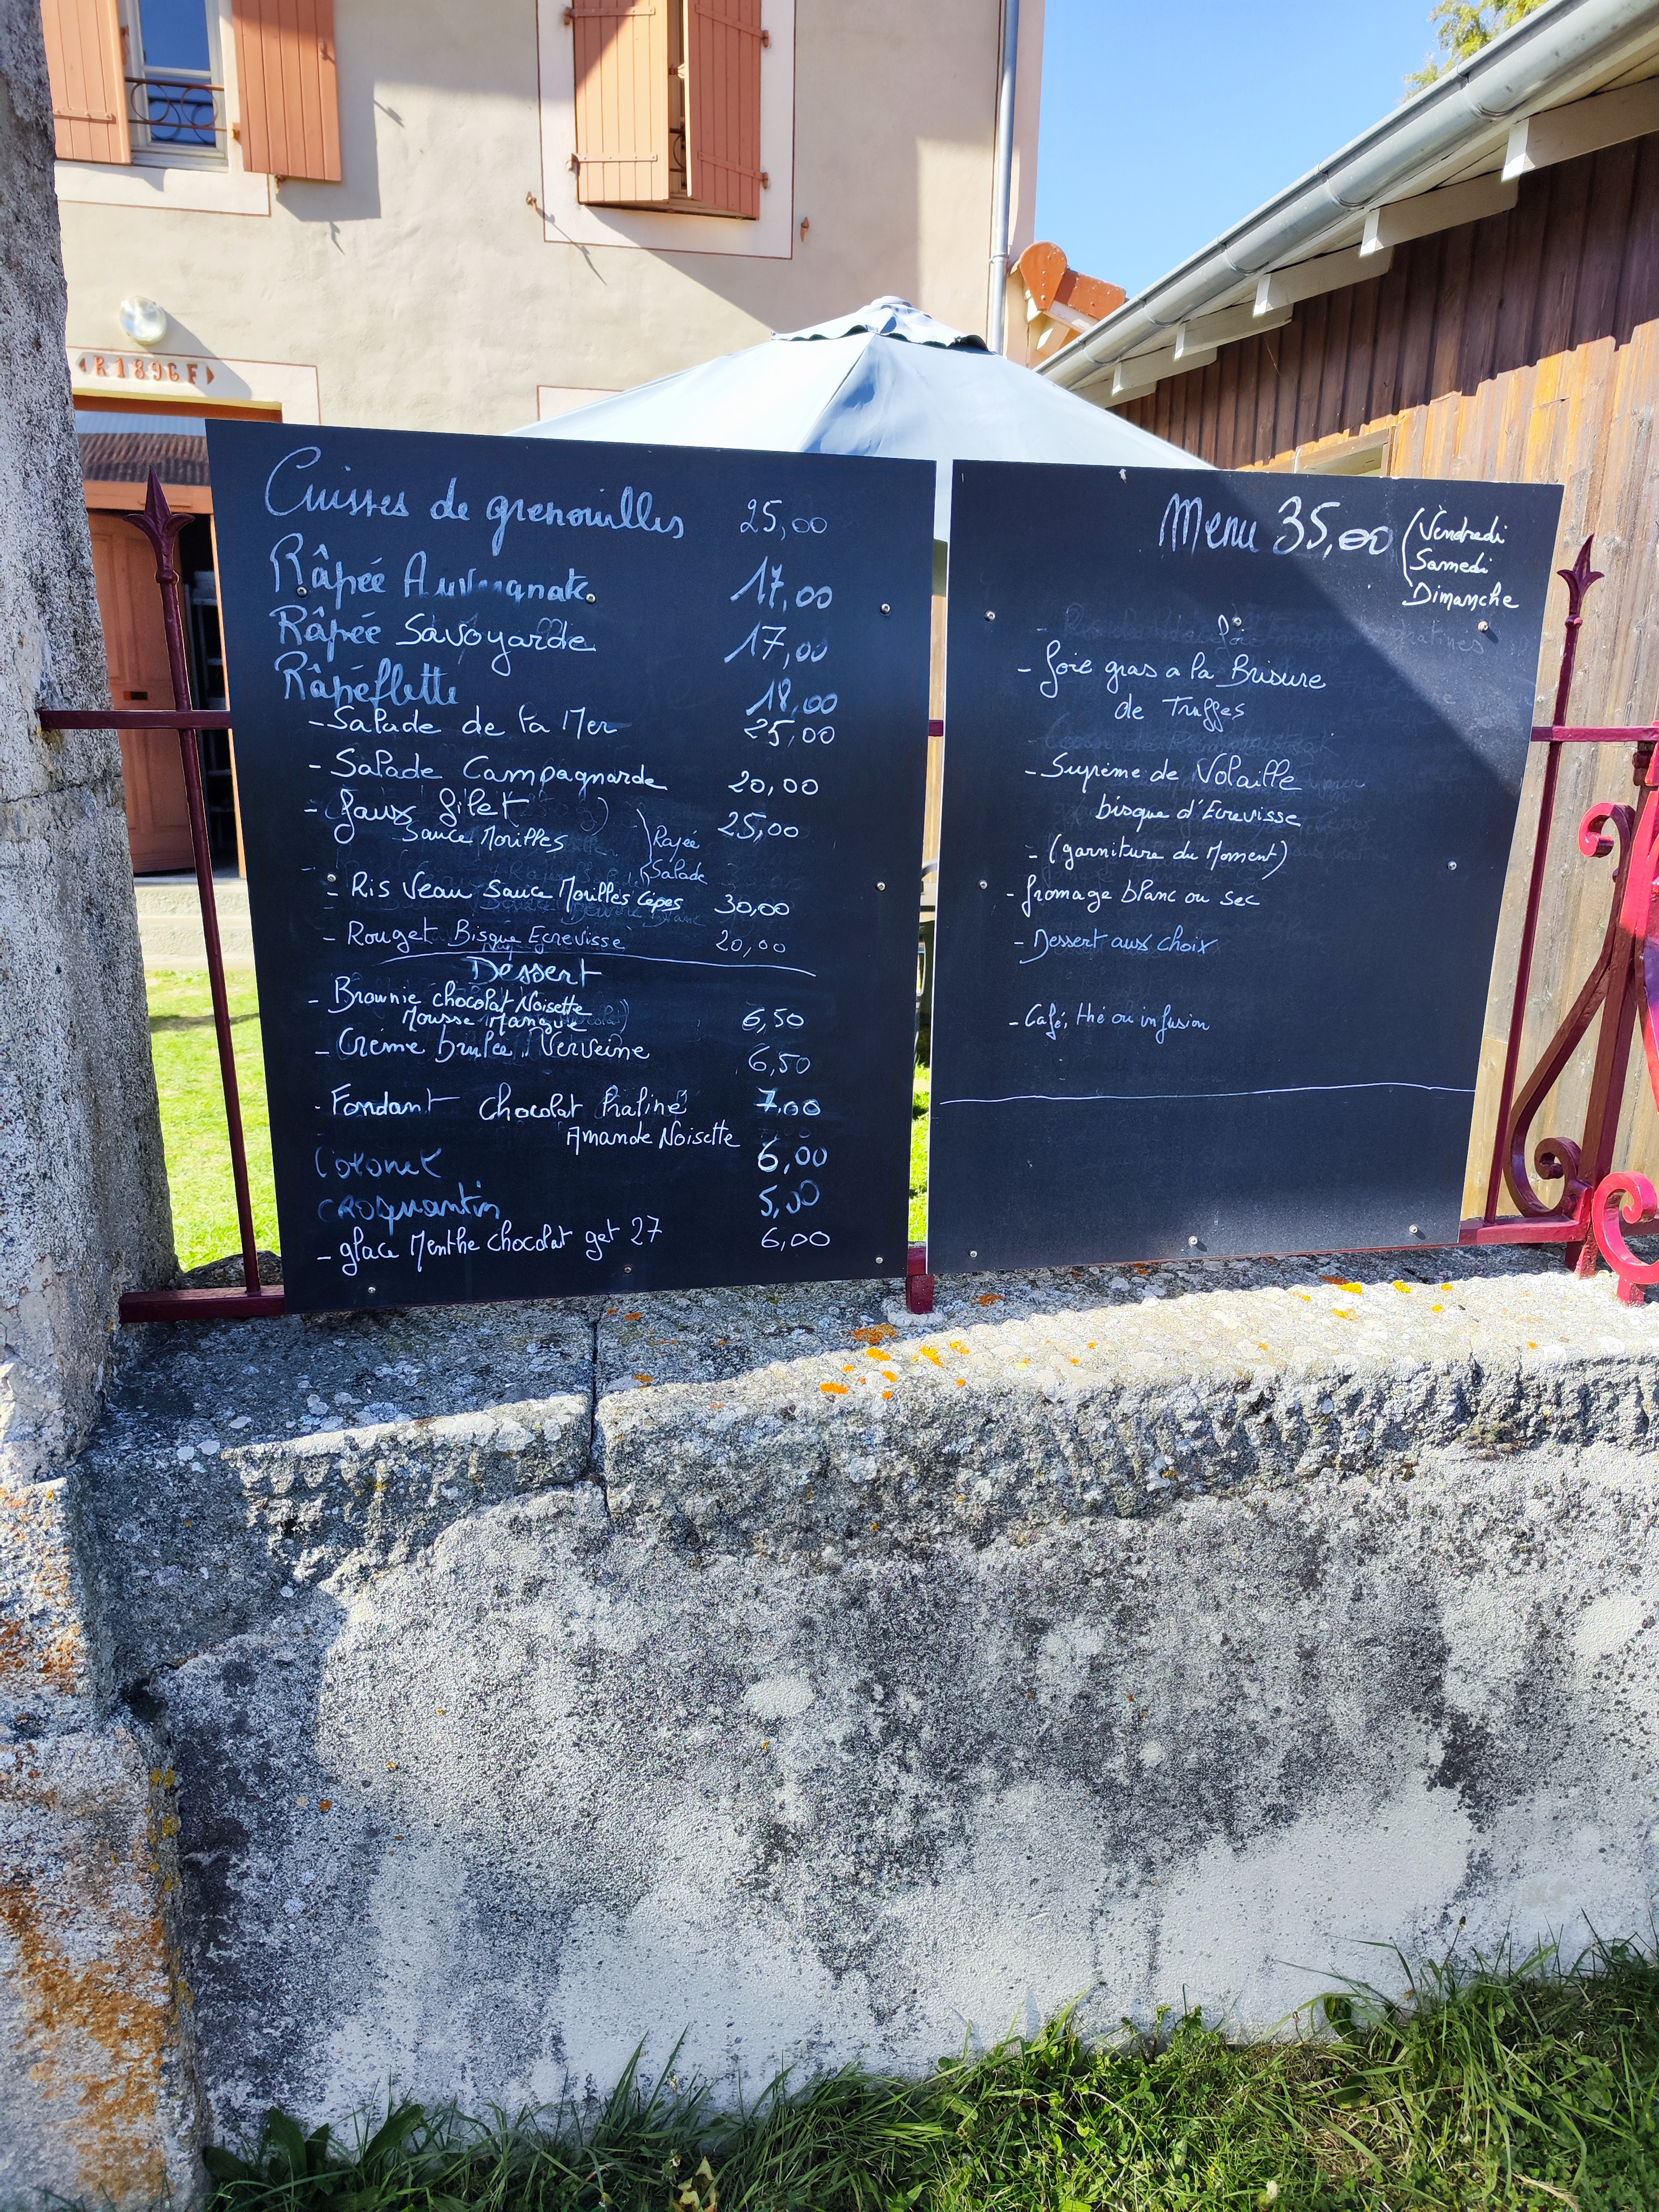 R1896F
Cuisses de grenouilles 25,00
Râpée Auvergnate 17,00
Râpée Savoyarde 17,00
Râpéflette 18,00
- Salade de la Mer 25,00
- Salade Campagnarde 20,00
- faux filet 25,00
Sauce Morilles
Rapée
Salade
- Ris Veau Sauce Morilles Cèpes 30,00
- Rouget Bisque Ecrevisse 20,00
Dessert
- Brownie chocolat Noisette
Mousse Mangue 6,50
- Crème brulée Verveine 6,50
- Fondant chocolat Praliné 7,00
Amande Noisette
Colonel 6,00
CROQuantin 5,00
- glace Menthe chocolat get 27 6,00
Menu 35,00 (Vendredi
Samedi
Dimanche
- foie gras a la Brisure
de Truffes
- Suprême de Volaille
bisque d'Ecrevisse
- (garniture du Moment)
- fromage blanc ou sec
- Dessert aux choix
- Café, thé ou infusion